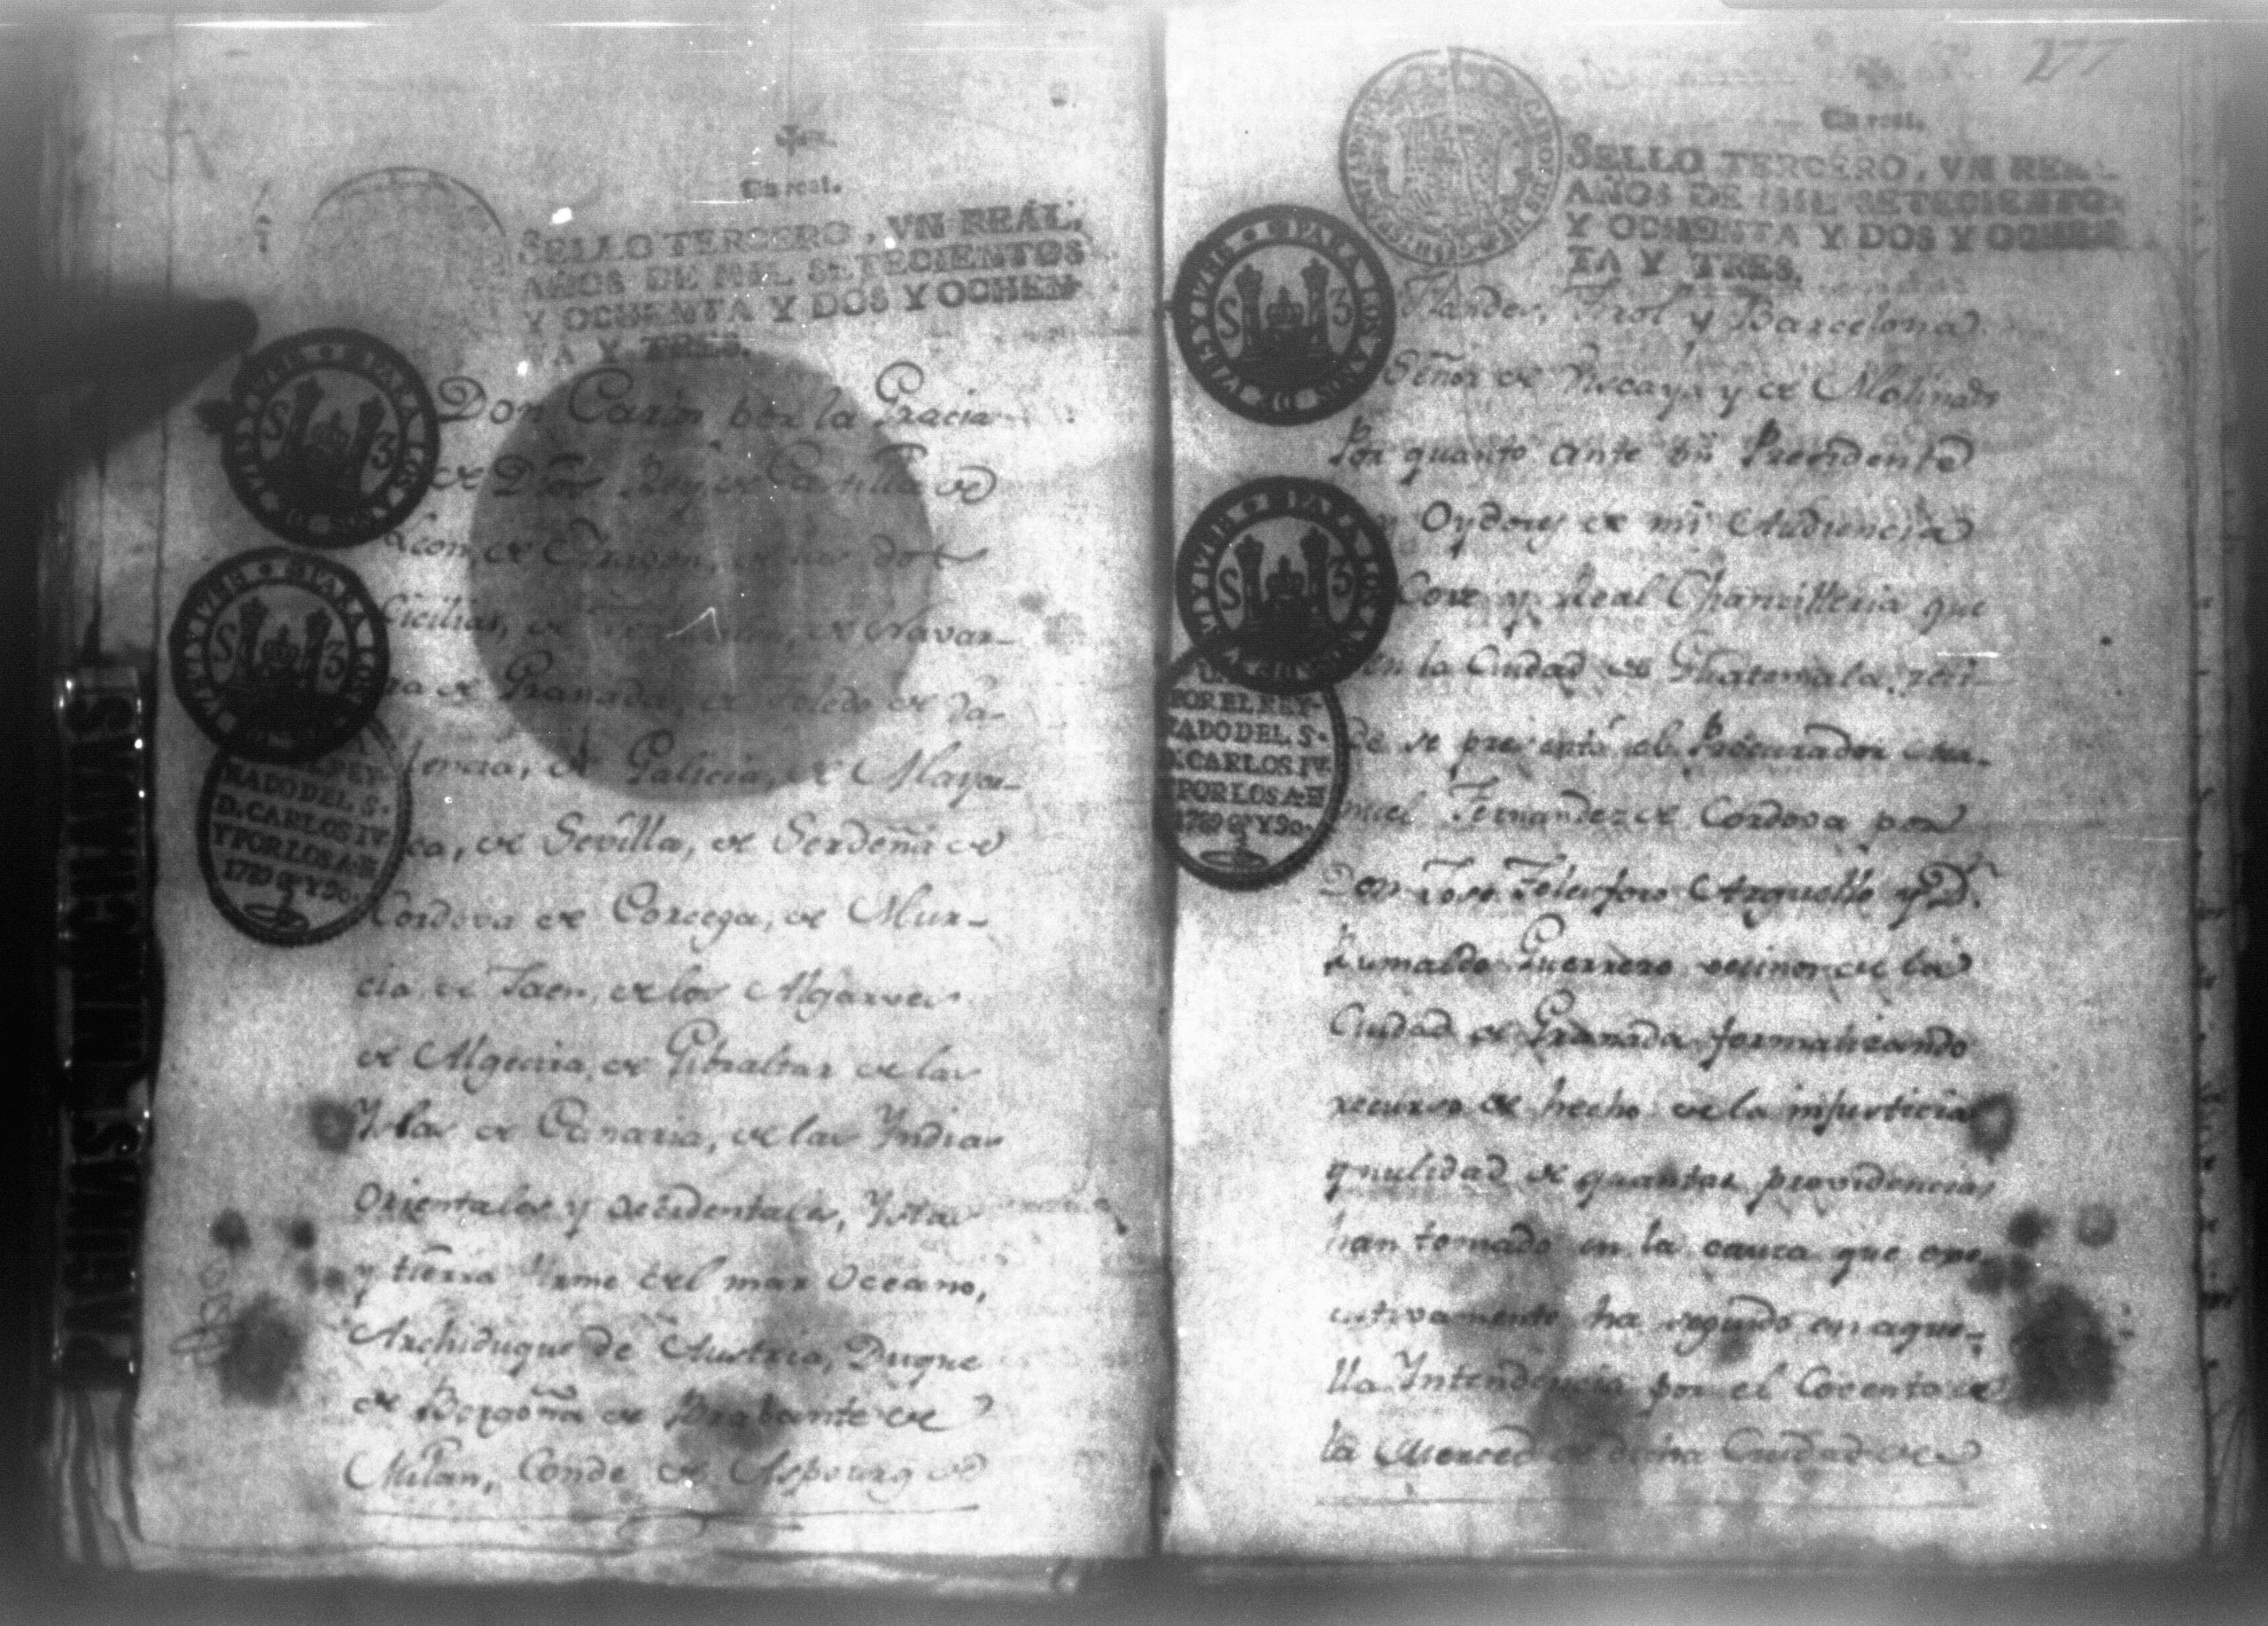 Un real.
SELLO TERCERO, VN REAL,
AÑOS DE MIL SETECIENTOS
Y OCHENTA Y DOS Y OCHEN-
TA Y TRES.
PARA LOS AÑOS DE 1787 Y 1788
S 3
PARA LOS AÑOS DE 1787 Y 1788
S 3
NADO DEL S.
D. CARLOS IV.
Y POR LOS A. D
1789 Y 90.
Don Carlos por la Gracia
de Dios Rey de Castilla de
Leon, de Aragon, de las dos
Cicilias, de Jerusalen, de Navar-
ra de Granada, de Toledo de Va-
lencia, de Galicia, de Mayor-
ca, de Sevilla, de Serdeña de
Cordova de Corcega, de Mur-
cia, de Jaen, de los Algarves
de Algecira, de Gibraltar de las
Yslas de Canaria, de las Yndias
Orientales y Occidentales, Yslas
y tierra firme del mar Oceano,
Archiduque de Austria, Duque
de Borgoña de Brabante de
Milan, Conde de Aspourg de
277
Un real.
SELLO TERCERO, VN REAL
AÑOS DE MIL SETECIENTOS
Y OCHENTA Y DOS Y OCHEN
TA Y TRES.
PARA LOS AÑOS DE 1787 Y 1788
S 3
PARA LOS AÑOS DE 1787 Y 1788
S 3
POR EL REY-
NADO DEL S.
D. CARLOS IV.
Y POR LOS A. D
1789 Y 90.
Flandes, Tirol y Barcelona
Señor de Viscaya y de Molina
Por quanto ante mi Precidente
y Oydores de mi Audiencia
Corte y Real Chancilleria que
en la Ciudad de Ghatemala reci-
de se presentó el Procurador Ma-
nuel Fernandez de Cordova por
Don Jose Telesforo Arguello y D.
Rumaldo Guerrero vecinos de la
Ciudad de Granada formalizando
recurso de hecho de la injusticia
y nulidad de quantas providencias
han tomado en la causa que exe-
cutivamente ha seguido en aque-
lla Intendencia por el Covento de
la Merced de dicha Ciudad de